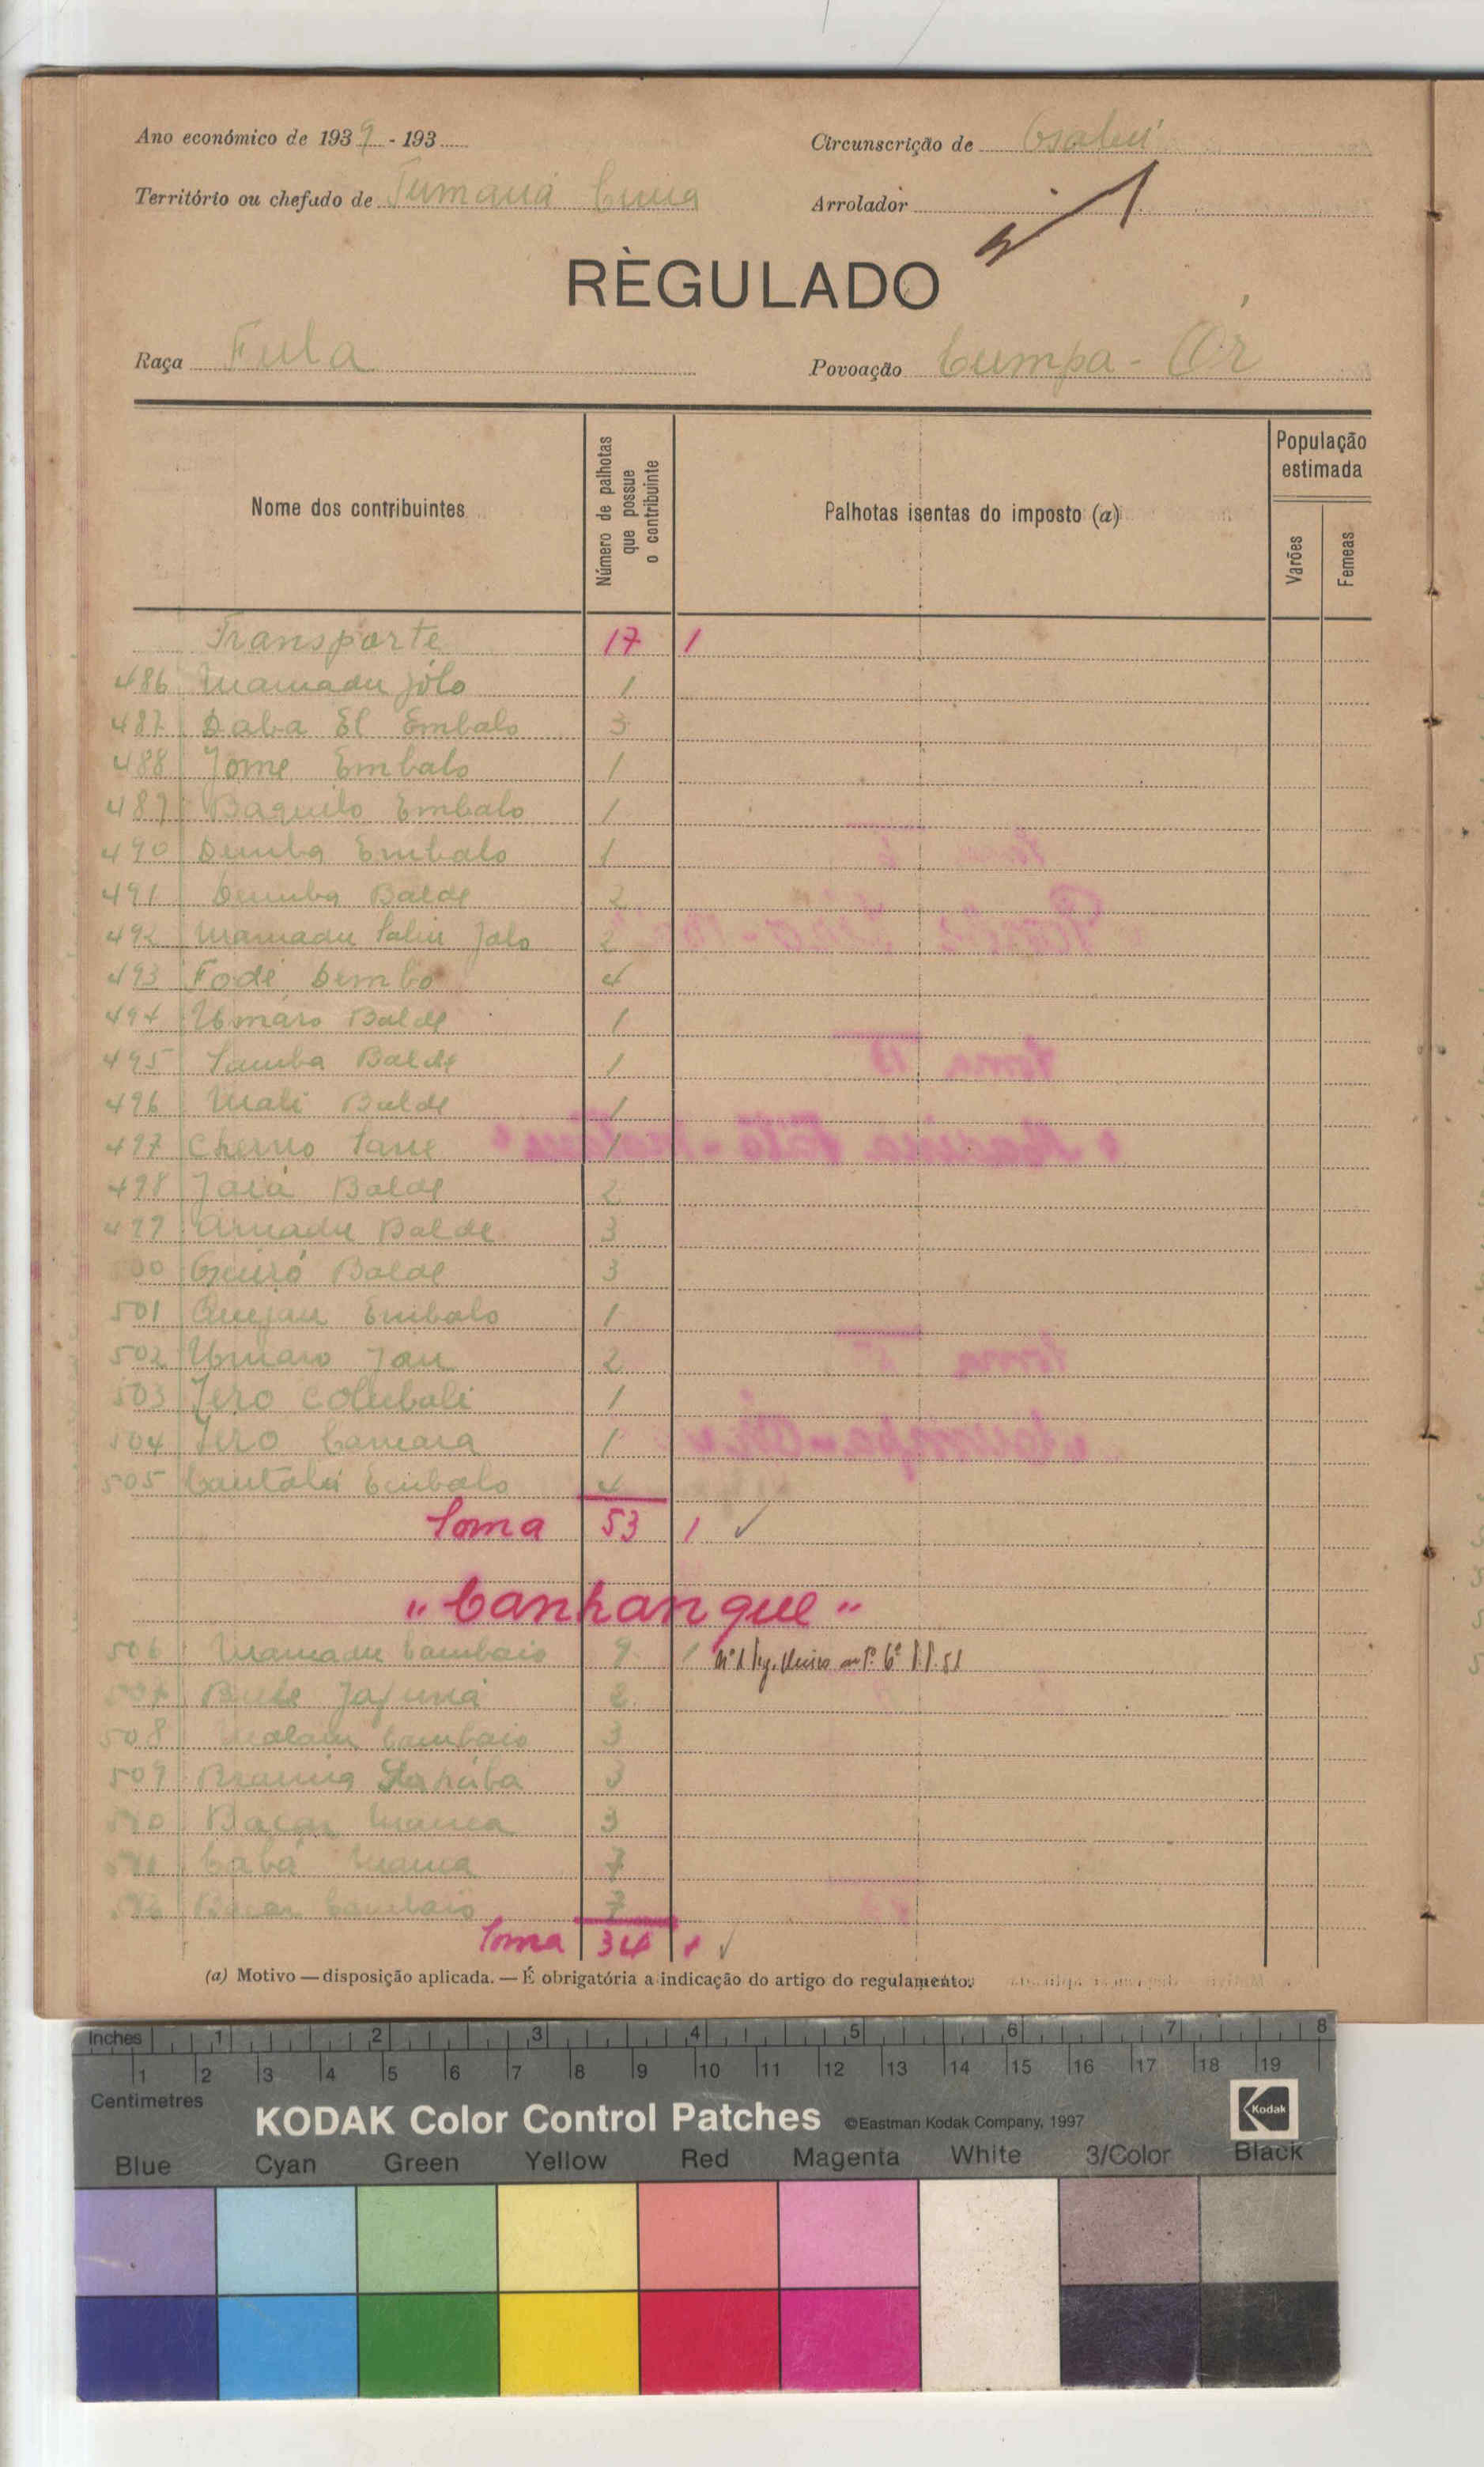 Ano económico de 1939 - 193
Circunscrição de Gabú
Território ou chefado de Tumaná Cuma
Arrolador
RÈGULADO
Raça Fula
Povoação Cumpa - Ór
Nome dos contribuintes
Número de palhotas que possue o contribuinte
Palhotas isentas do imposto (a)
População estimada
Varões
Femeas
Transporte 17 1
486 Mamadu Jóló 1
487 Daba El Embalo 3
488 Jome Embalo 1
489 Baquilo Embalo 1
490 Demba Embalo 1
491 Demba Balde 2
492 Mamadu Saliu Jalo 2
493 Fodé Dembo 4
494 Umaro Balde 1
495 Samba Balde 1
496 Mali Balde 1
497 Cherno Sane 1
498 Jaiá Balde 2
499 Amadu Balde 3
500 Guiró Balde 3
501 Embalo 1
502 Umaro Jau 2
503 Jero Colubali 1
504 Jero Camara 1
505 Embalo 4
Soma 53 1 ✓
"Canhanque"
506 Mamadu Cambaio 9 1
8
508 Malam Cambaio 3
509 Braima 3
510 Bacar Mama 3
Caba Mama
Bacar Cambaio
Soma 34 1 ✓
(a) Motivo — disposição aplicada. — É obrigatória a indicação do artigo do regulamento.
Inches 1 2 3 4 5 6 7 8
1 2 3 4 5 6 7 8 9 10 11 12 13 14 15 16 17 18 19
Centimetres
KODAK Color Control Patches ©Eastman Kodak Company, 1997 Kodak
Blue Cyan Green Yellow Red Magenta White 3/Color Black